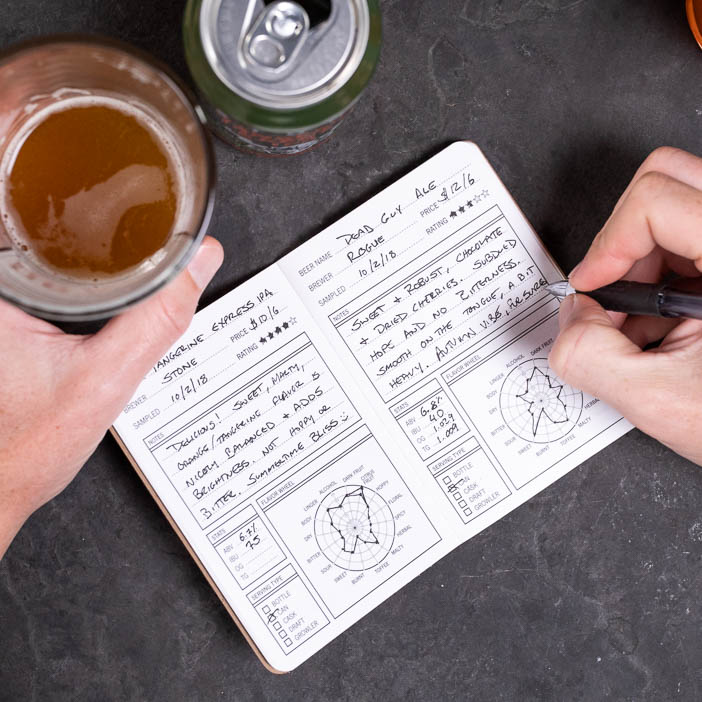 TANGERINE EXPRESS IPA
BREWER STONE PRICE $10/6
SAMPLED 10/2/18 RATING ★★★★☆
NOTES
DELICIOUS! SWEET, MALTY,
ORANGE/TANGERINE FLAVOR IS
NICELY BALANCED + ADDS
BRIGHTNESS. NOT HOPPY OR
BITTER. SUMMERTIME BLISS :)
STATS
ABV 6.7%
IBU 75
OG
TG
SERVING TYPE
BOTTLE
CAN
CASK
DRAFT
GROWLER
FLAVOR WHEEL
ALCOHOL
DARK FRUIT
CITRUS FRUIT
HOPPY
FLORAL
SPICY
HERBAL
MALTY
TOFFEE
BURNT
SWEET
SOUR
BITTER
DRY
BODY
LINGER
BEER NAME DEAD GUY ALE
BREWER ROGUE PRICE $12/6
SAMPLED 10/2/18 RATING ★★★☆☆
NOTES
SWEET + ROBUST, CHOCOLATE
+ DRIED CHERRIES. SUBDUED
HOPS AND NO BITTERNESS.
SMOOTH ON THE TONGUE, A BIT
HEAVY. AUTUMN VIBE, FOR SURE!
STATS
ABV 6.8%
IBU 40
OG 1.029
TG 1.009
SERVING TYPE
BOTTLE
CAN
CASK
DRAFT
GROWLER
FLAVOR WHEEL
ALCOHOL
DARK FRUIT
HERBAL
MALTY
TOFFEE
BURNT
SWEET
SOUR
BITTER
DRY
BODY
LINGER